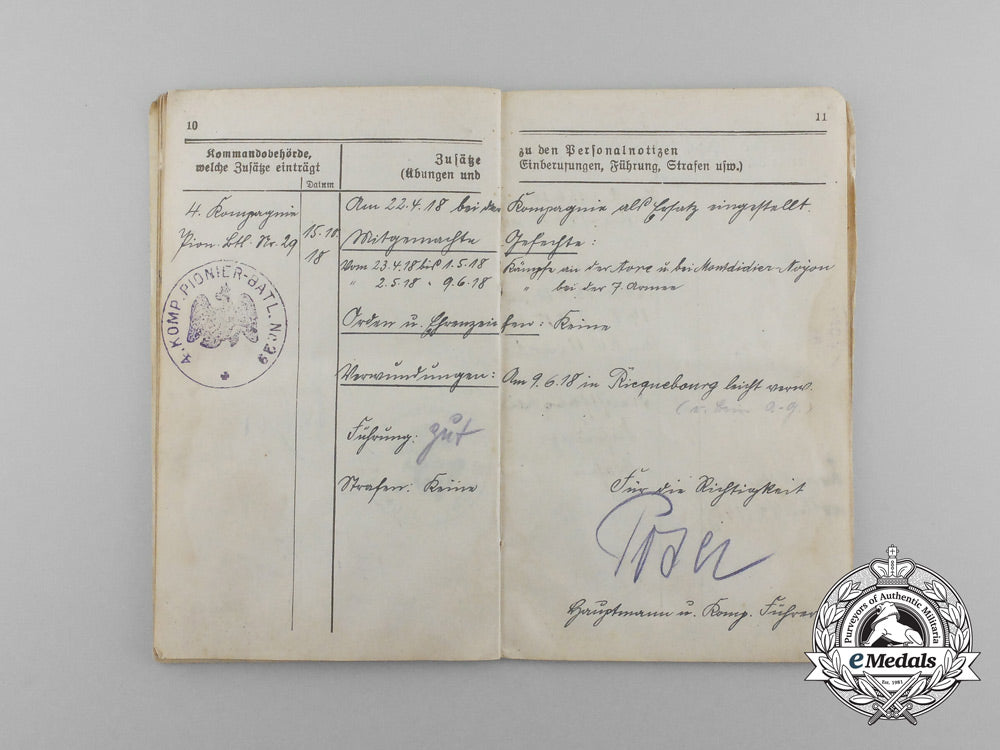 10
11
Kommandobehörde,
welche Zusätze einträgt
Datum
Zusätze zu den Personalnotizen
(Übungen und Einberufungen, Führung, Strafen usw.)
4. Kompagnie
Pion. Btl. Nr. 29
15.10.
18
4. KOMP. PIONIER-BATL. No. 29
Am 22.4.18 bei der Kompagnie als Ersatz eingestellt.
Mitgemachte Gefechte:
Vom 23.4.18 bis 1.5.18 Kämpfe an der Avre u. bei Montdidier-Noyon
" 2.5.18 " 9.6.18 " bei der 7. Armee
Orden u. Ehrenzeichen: Keine
Verwundungen: Am 9.6.18 in Ricquebourg leicht verw.
Führung: gut
Strafen: Keine
Für die Richtigkeit
Poser
Hauptmann u. Komp. Führer
Purveyors of Authentic Militaria
eMedals
Est. 1981